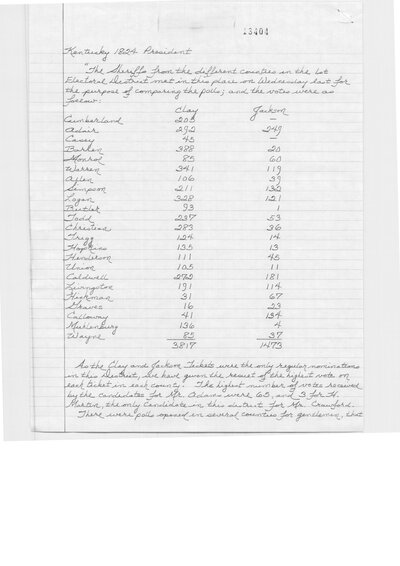 13404
Kentucky 1824 President
"The Sheriffs from the different counties in the 1st
Electoral District met in this place on Wednesday last for
the purpose of comparing the polls; and the votes were as
follow:
Clay Jackson
Cumberland 205 —
Adair 292 249
Casey 45 —
Barren 388 20
Monroe 85 60
Warren 341 119
Allen 106 39
Simpson 211 132
Logan 328 121
Butler 93 1
Todd 237 53
Christian 283 36
Trigg 124 14
Hopkins 135 13
Henderson 111 45
Union 105 11
Caldwell 272 181
Livingston 191 114
Hickman 31 67
Graves 16 23
Calloway 41 134
Muhlenburg 136 4
Wayne 85 37
3817 1473
As the Clay and Jackson Tickets were the only regular nominations
in this District, we have given the result of the highest vote on
each ticket in each county. The highest number of votes received
by the candidates for Mr. Adams were 65, and 3 for H.
Martin, the only candidate in this district for Mr. Crawford.
There were polls opened in several counties for gentlemen, that